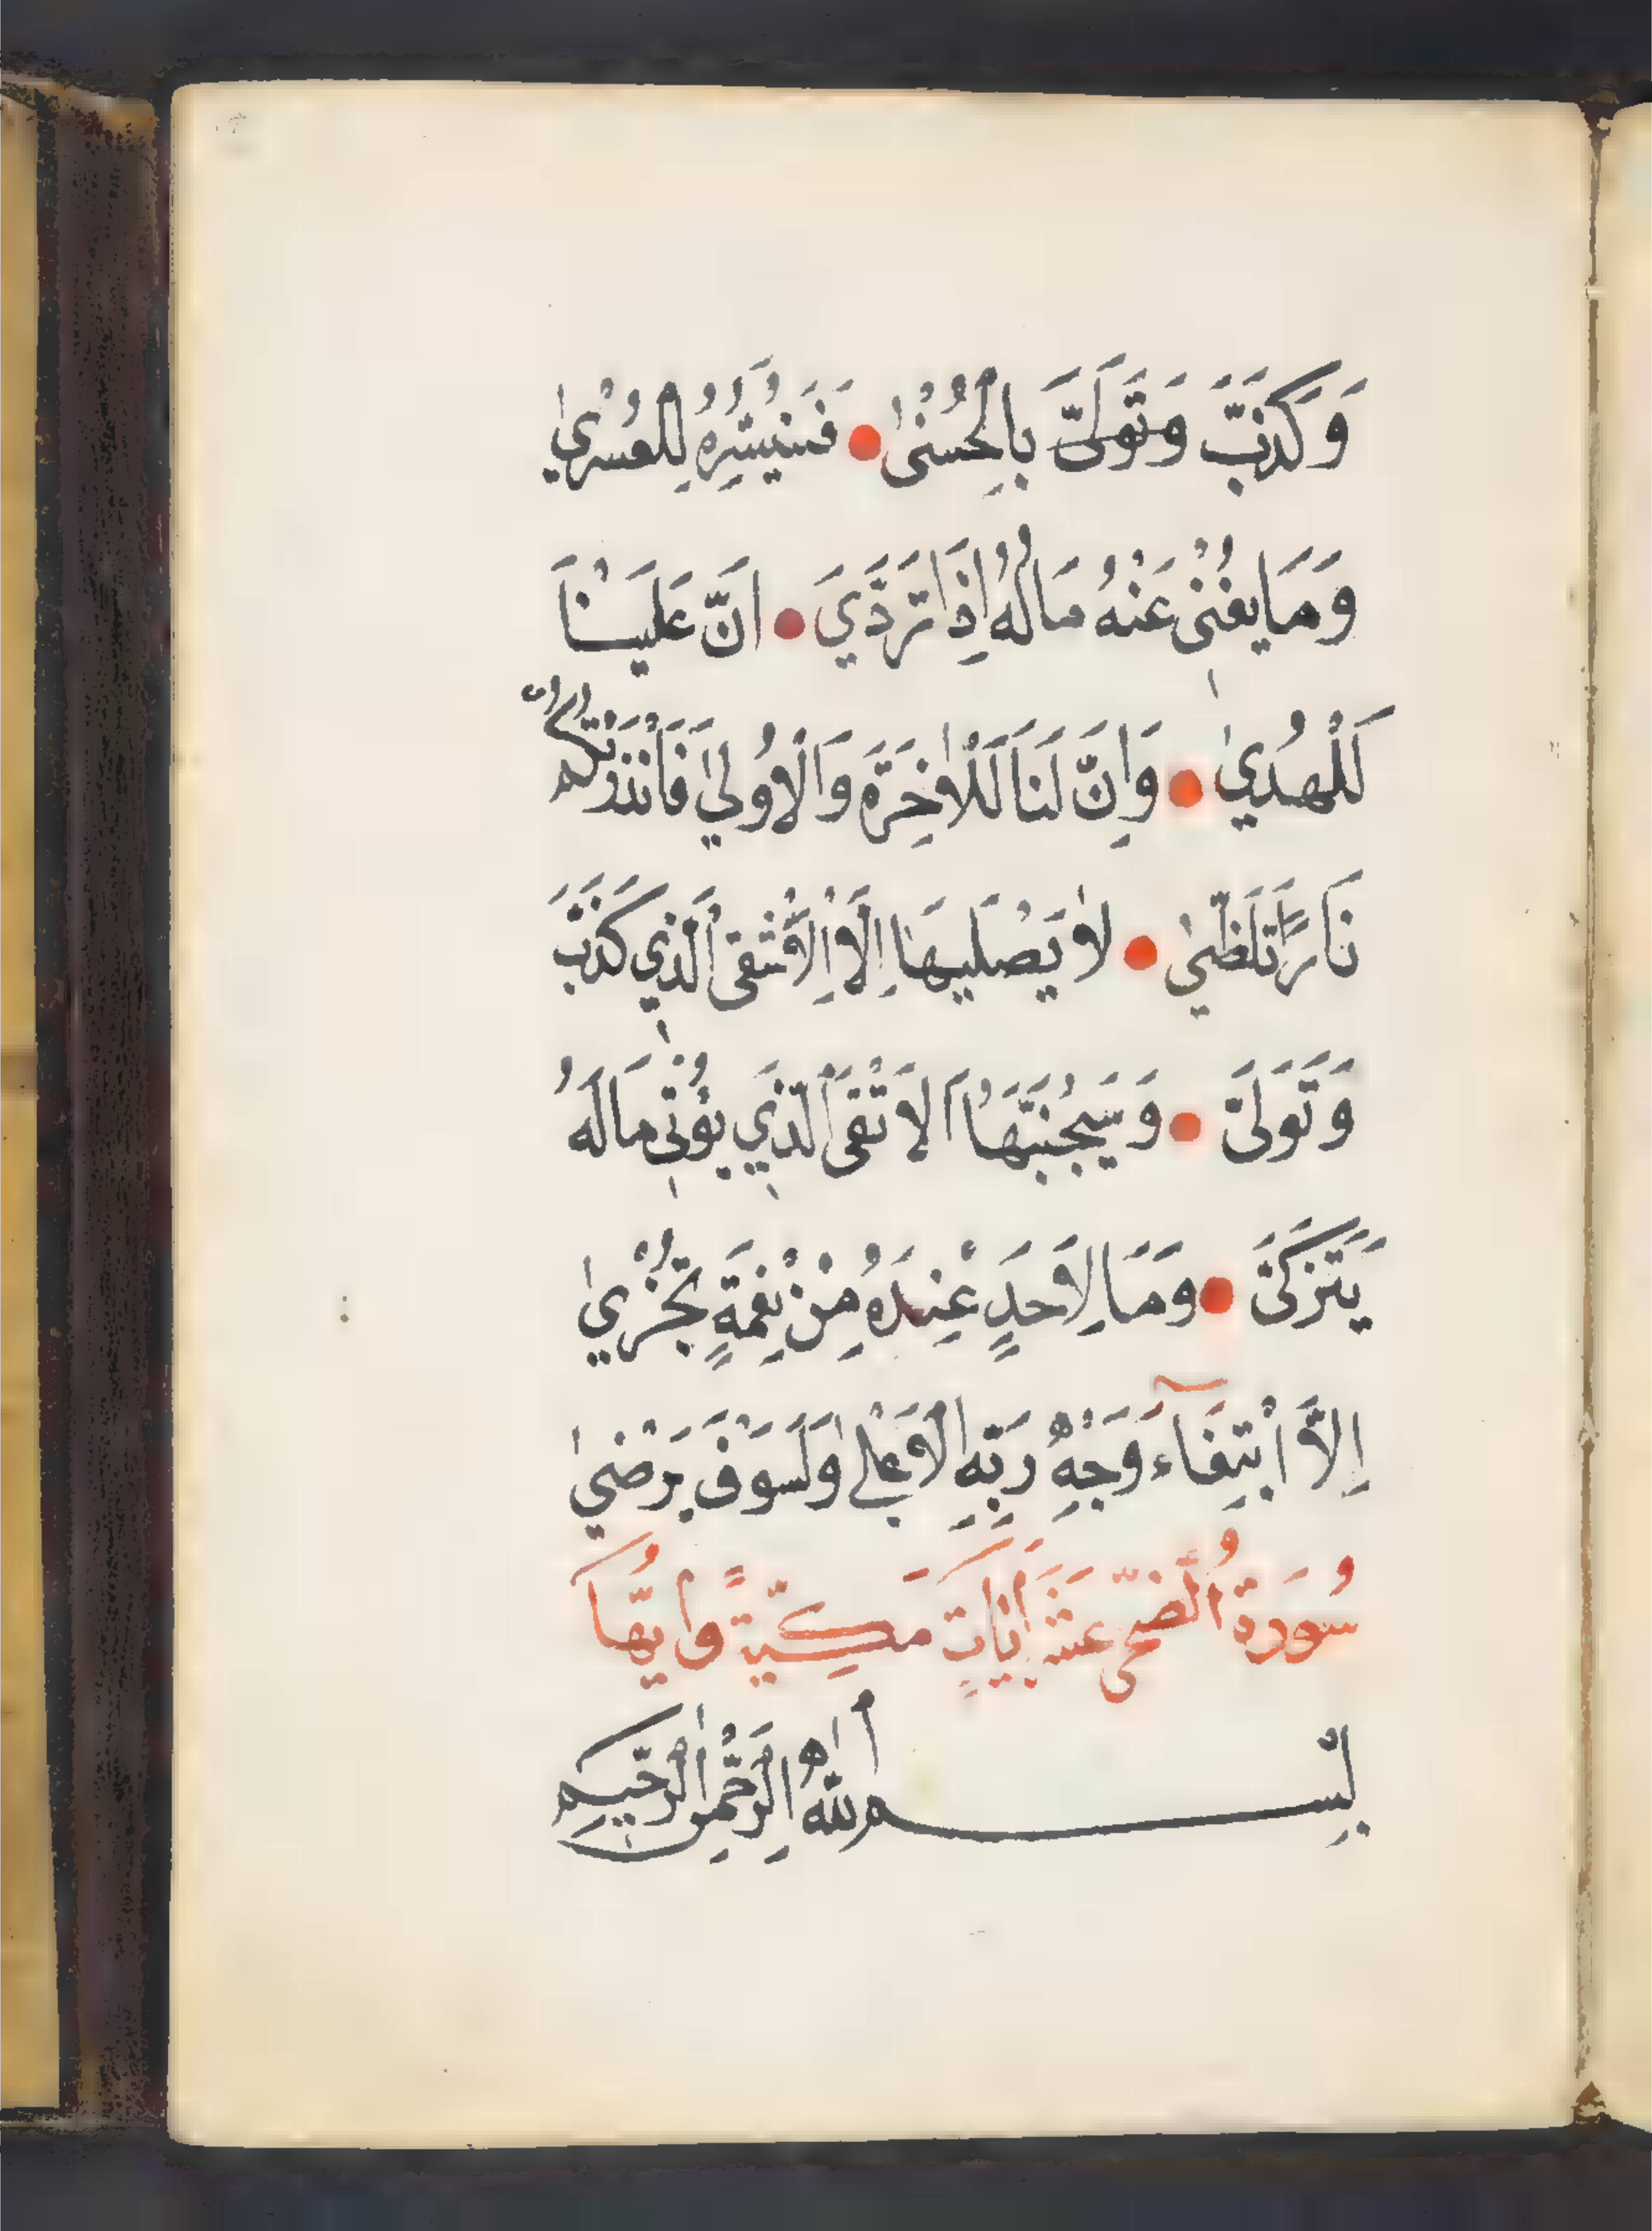 وَكَذَّبَ وَتَوَلَّىَ بِالْحُسْنٰى فَسَنُيَسِّرُهُ لِلْعُسْرٰي
وَمَا يُغْنِي عَنْهُ مَالُهُ إِذَا تَرَدَّيَ اِنَّ عَلَيْنَا
لَلْهُدٰي وَاِنَّ لَنَا لَلْاٰخِرَةَ وَالْاُوليٰ فَاَنْذَرْتُكُمْ
نَارًا تَلَظّٰي لَا يَصْلَيهَا اِلَّا الْاَشْقَى الَّذِي كَذَّبَ
وَتَوَلَّىَ وَسَيُجَنَّبُهَا الْاَتْقَى الَّذِي يُؤْتِي مَالَهُ
يَتَزَكَّىَ وَمَا لِاَحَدٍ عِنْدَهُ مِنْ نِعْمَةٍ تُجْزٰي
اِلَّا ابْتِغَآءَ وَجْهِ رَبِّهِ الْاَعْلٰي وَلَسَوْفَ يَرْضٰي
سُورَةُ الضُّحى عَشَرَ اٰيَاتٍ مَكِّيَّةً وايُّهَا
بِسْمِ اللّٰهِ الرَّحْمٰنِ الرَّحِيمِ